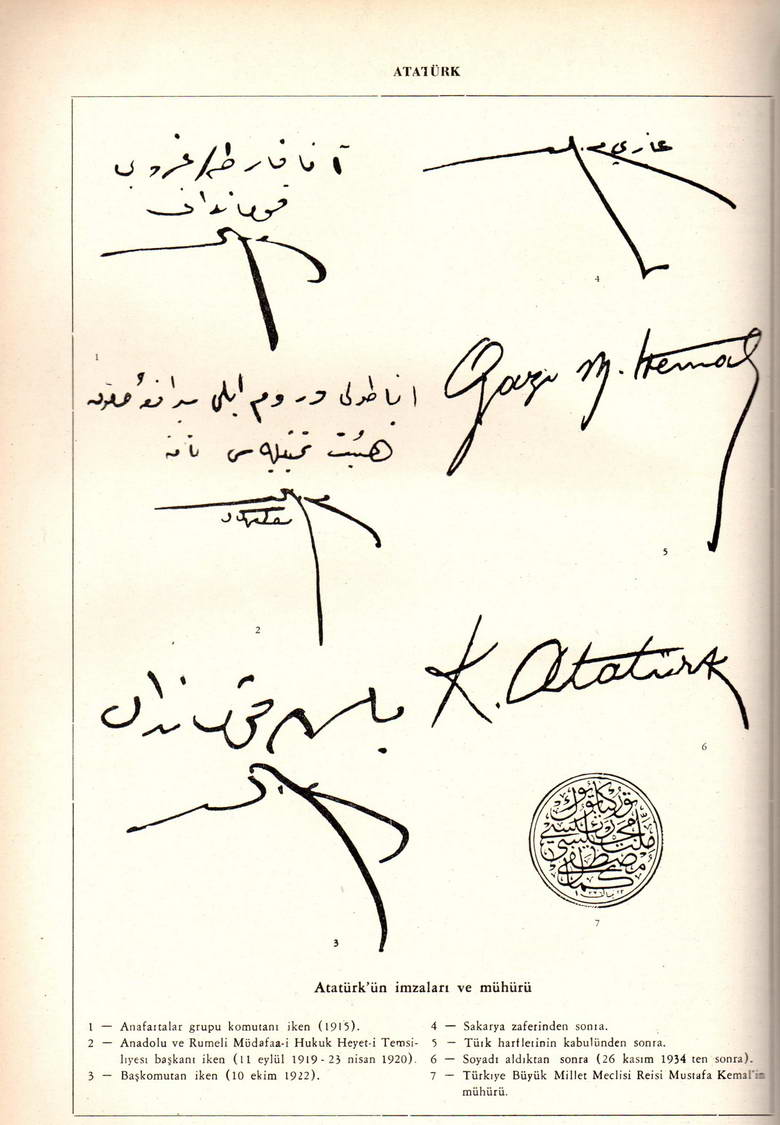 ATATÜRK
آنافارطهلر غروپى
قوماندانى
1
غازى م. كمال
4
اناطولى و روم ايلى مدافعۀ حقوق
هيئت تمثيليه سى نامنه
م. كمال
2
Gazi M. Kemal
5
باش قوماندان
3
K. Atatürk
6
7
Atatürk'ün imzaları ve mühürü
1 — Anafartalar grupu komutanı iken (1915).
2 — Anadolu ve Rumeli Müdafaa-i Hukuk Heyet-i Temsi-
liyesi başkanı iken (11 eylül 1919 - 23 nisan 1920).
3 — Başkomutan iken (10 ekim 1922).
4 — Sakarya zaferinden sonra.
5 — Türk harflerinin kabulünden sonra.
6 — Soyadı aldıktan sonra (26 kasım 1934 ten sonra).
7 — Türkiye Büyük Millet Meclisi Reisi Mustafa Kemal'in
mühürü.